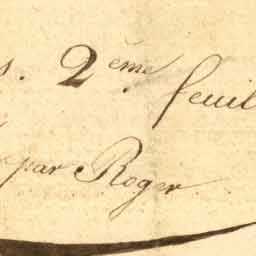 s. 2ème feuil
par Roger